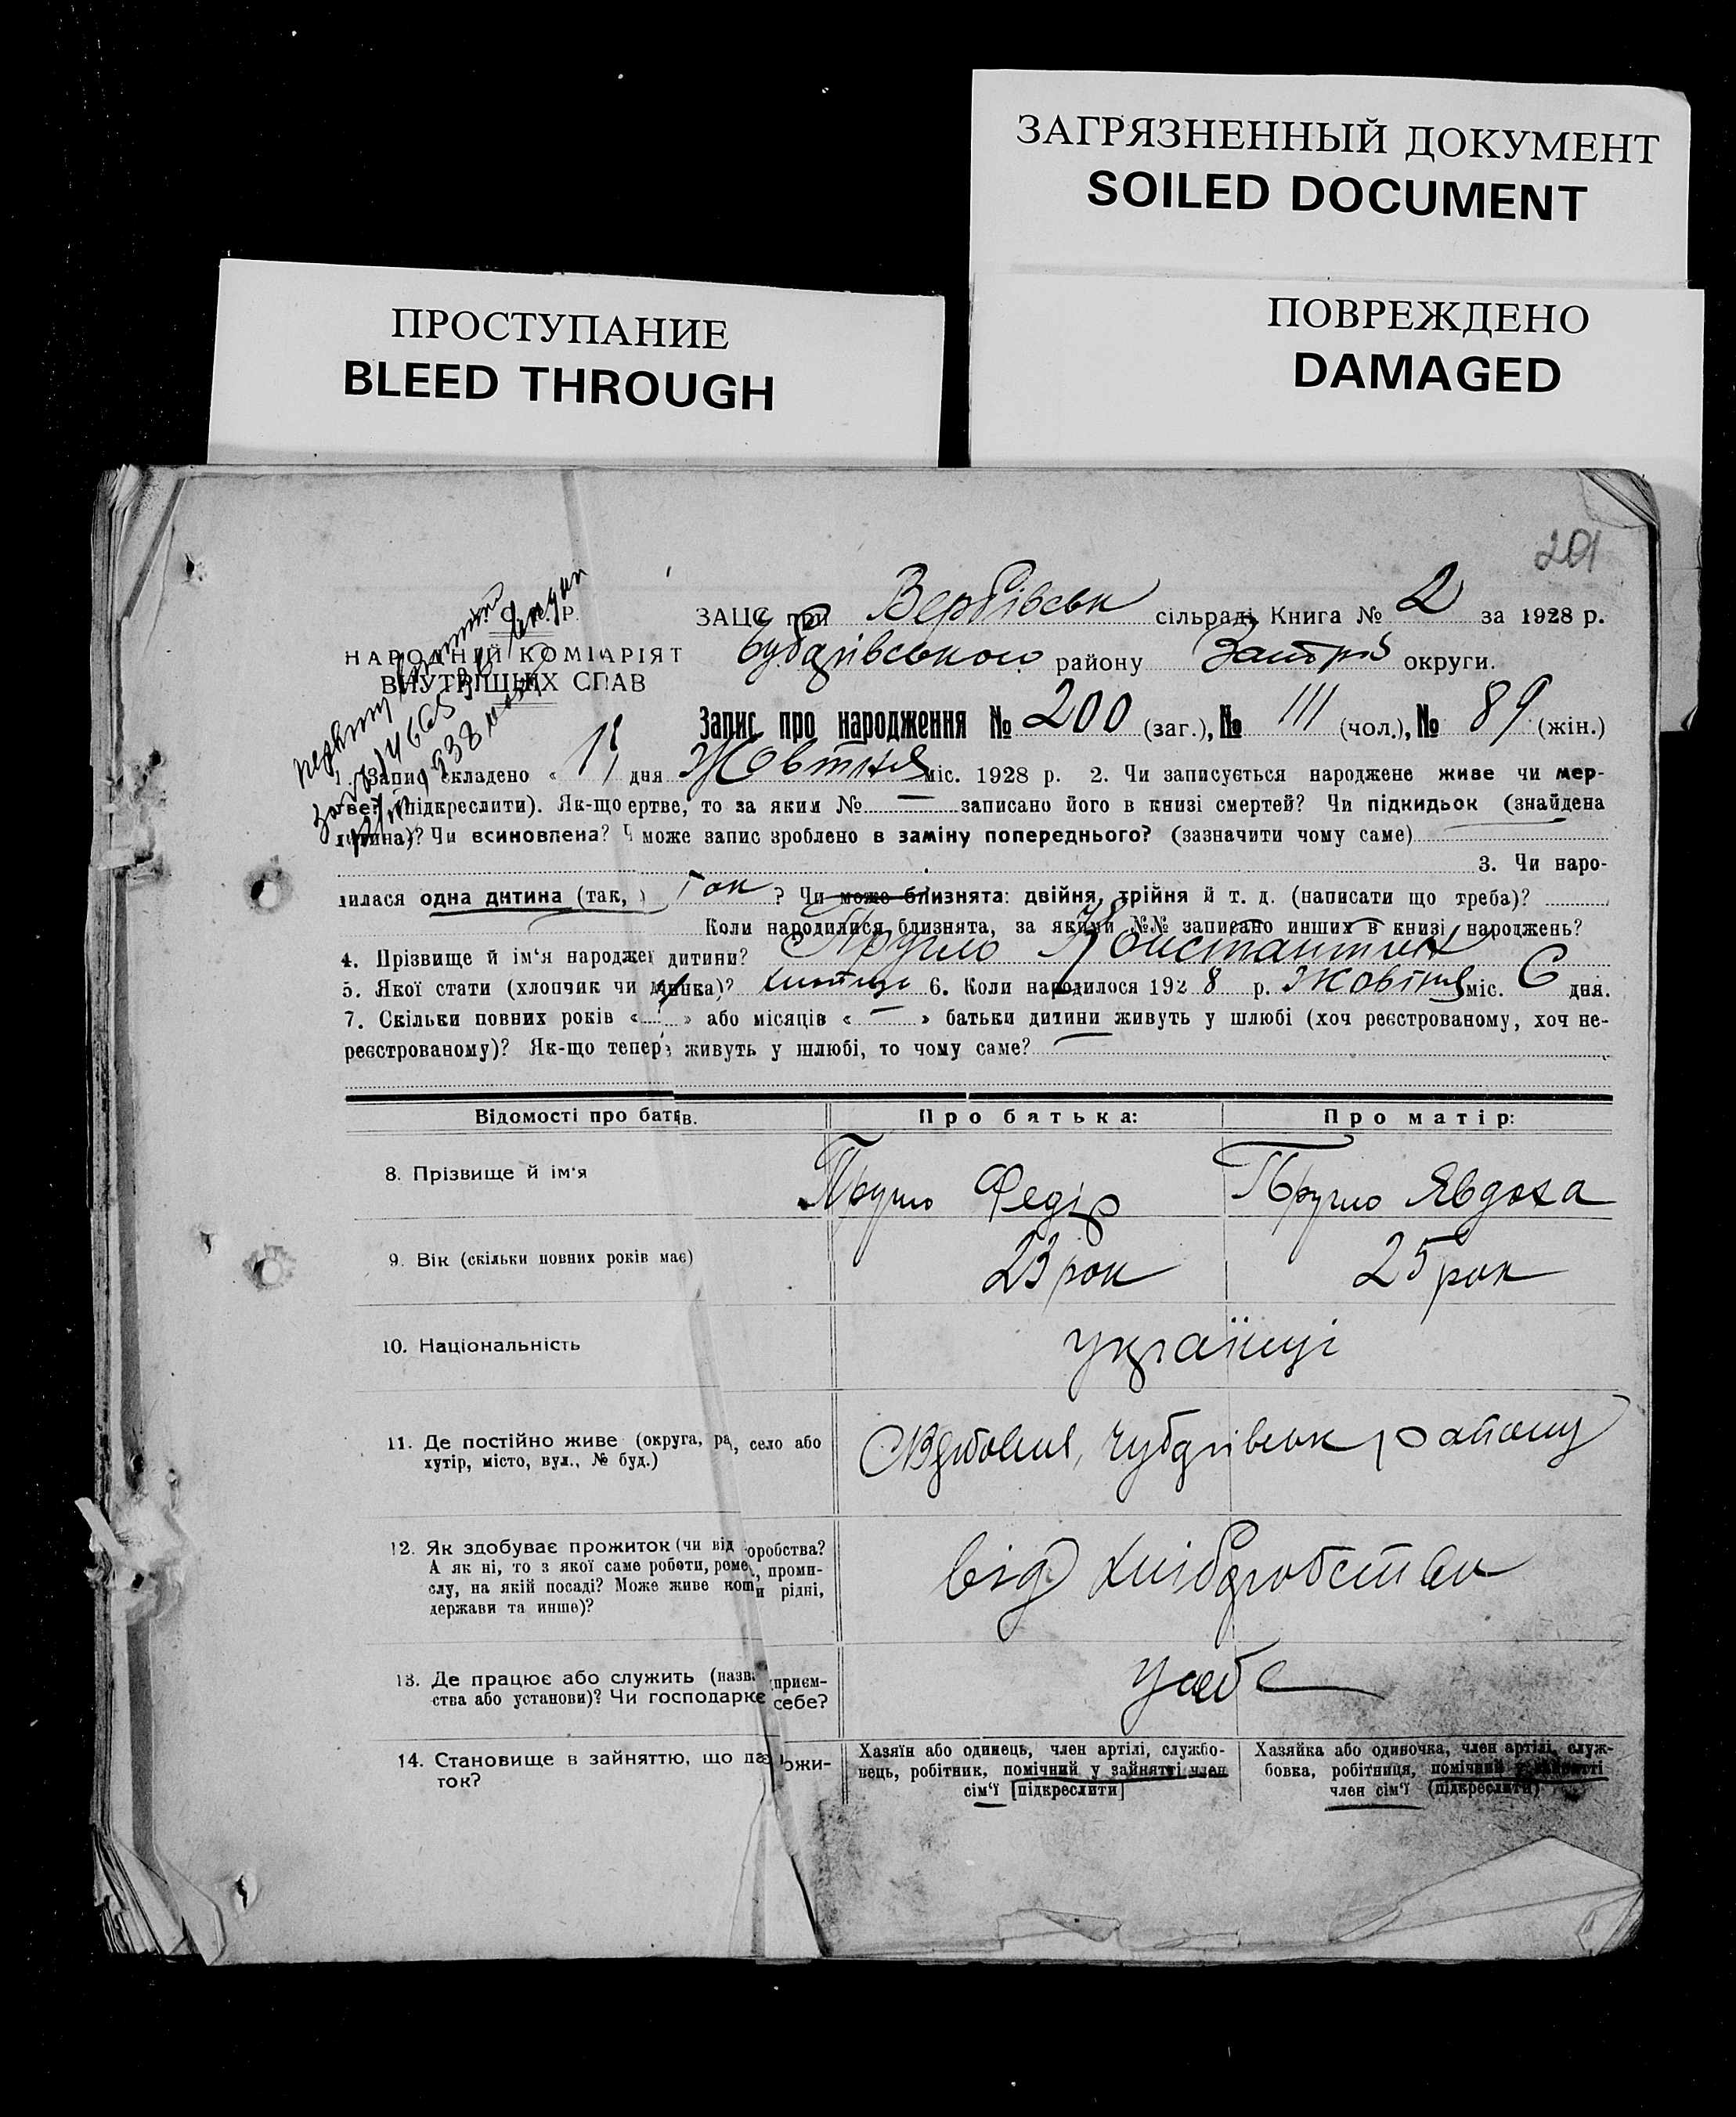 ЗАГРЯЗНЕННЫЙ ДОКУМЕНТ
SOILED DOCUMENT
ПРОСТУПАНИЕ
BLEED THROUGH
ПОВРЕЖДЕНО
DAMAGED
201
НАРОДНІЙ КОМІАРІЯТ
ВНУТРІШНІХ СПАВ
ЗАЦС при Вербівськ сільраді Книга № 2 за 1928 р.
району округи.
Запис про народження № 200 (заг.), № 111 (чол.), № 89 (жін.)
1. Запис складено « дня Жовтня міс. 1928 р. 2. Чи записується народжене живе чи мер-
тве? (підкреслити). Як-що ертве, то за яким № — записано його в книзі смертей? Чи підкидьок (знайдена
дитина)? Чи всиновлена? Ч може запис зроблено в заміну попереднього? (зазначити чому саме)
3. Чи наро-
дилася одна дитина (так, ) так ? Чи може близнята: двійня, трійня й т. д. (написати що треба)?
Коли народилися близнята, за якими №№ записано инших в книзі народжень?
4. Прізвище й ім‘я народжеї дитини? Константин
5. Якої стати (хлопчик чи динка)? 6. Коли народилося 1928 р. Жовтня міс. 6 дня.
7. Скільки повних років « » або місяців « — » батьки дитини живуть у шлюбі (хоч реєстрованому, хоч не-
реєстрованому)? Як-що тепер живуть у шлюбі, то чому саме?
Відомості про батів. Про батька: Про матір:
8. Прізвище й ім‘я Федір Явдоха
9. Вік (скільки повних років має) 23 рок 25 рок
10. Національність українці
11. Де постійно живе (округа, ра, село або
хутір, місто, вул., № буд.) району
12. Як здобуває прожиток (чи від оробства?
А як ні, то з якої саме роботи, реме, проми-
слу, на якій посаді? Може живе кошти рідні,
держави та инше)?
від хліборобства
13. Де працює або служить (назва приєм-
ства або установи)? Чи господарює себе?
у себе
14. Становище в зайняттю, що дає ожи-
ток?
Хазяїн або одинець, член артілі, службо-
вець, робітник, помічний у зайнятті член
сім‘ї [підкреслити]
Хазяйка або одиночка, член артілі, служ-
бовка, робітниця, помічний у зайнятті
член сім‘ї (підкреслити)